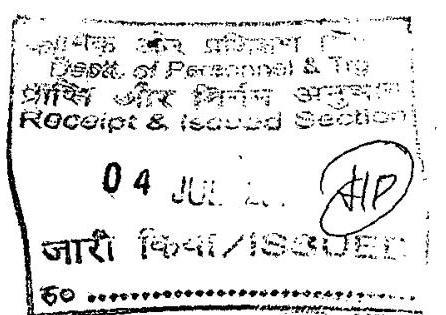 कार्मिक और प्रशिक्षण
Deptt. of Personnel & Trg
प्राप्ति और निर्गम अनुभाग
Receipt & Issued Section
04 JUL
जारी किया/ISSUED
ह०